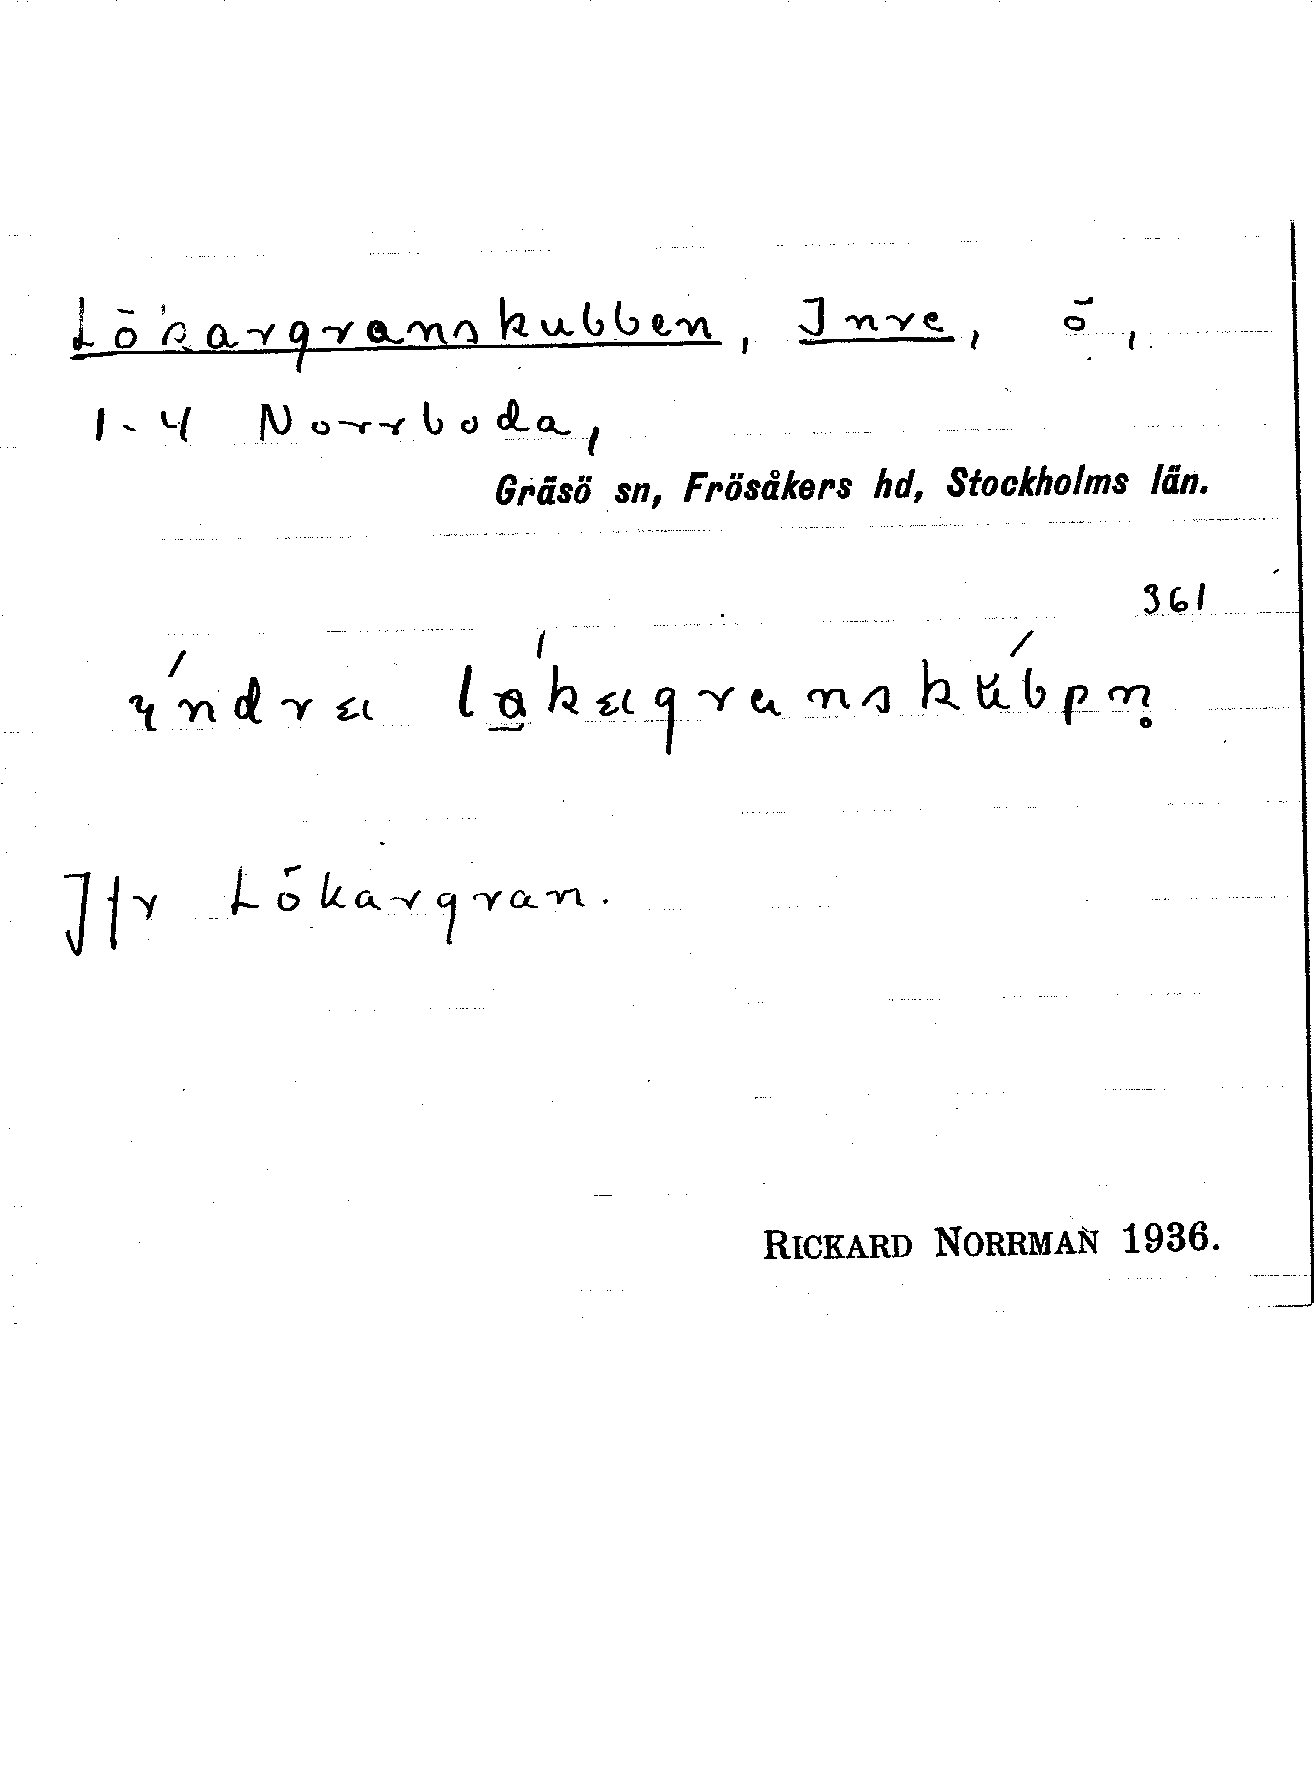 Lökargranskubben, Inre, ö,
1-4 Norrboda,
Gräsö sn, Frösåkers hd, Stockholms län.
361
Jfr Lökargran.
RICKARD NORRMAN 1936.